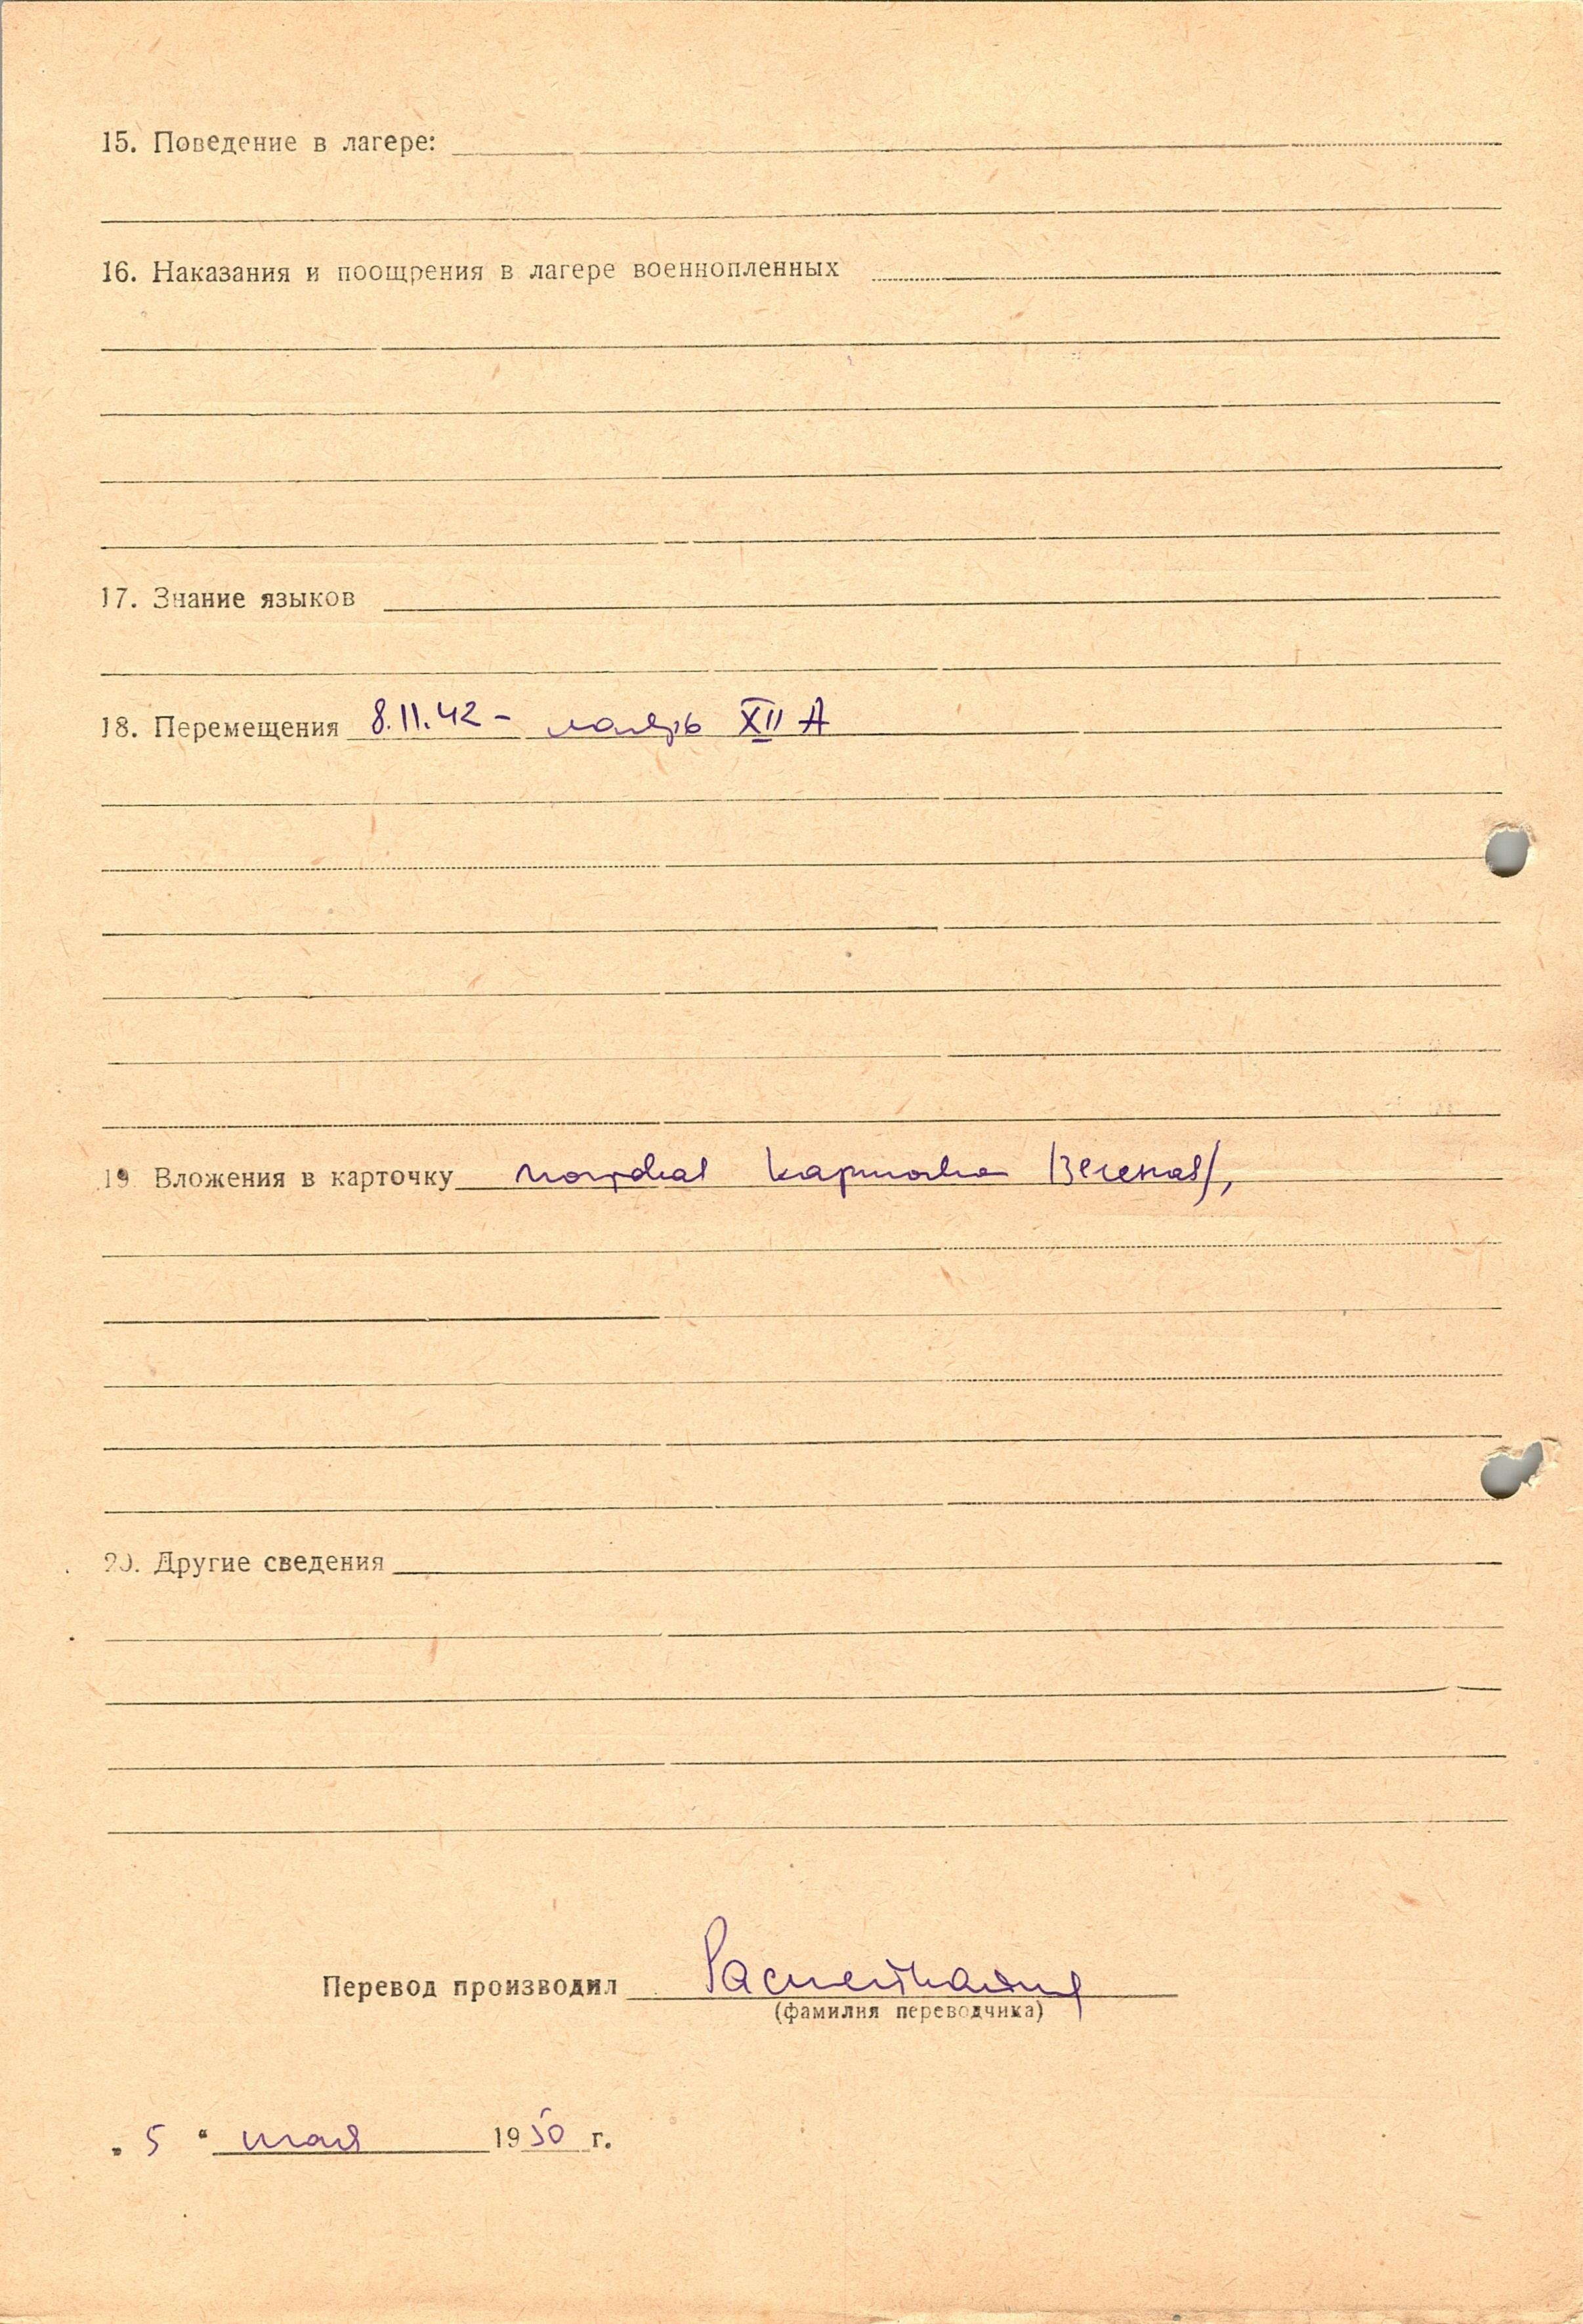 15. Поведение в лагере:
16. Наказания и поощрения в лагере военнопленных
17. Знание языков
18. Перемещения 8.11.42 - лагерь XII A
19. Вложения в карточку карточка /зеленая/,
20. Другие сведения
Перевод производил
(фамилия переводчика)
„ 5 “ мая 1950 г.